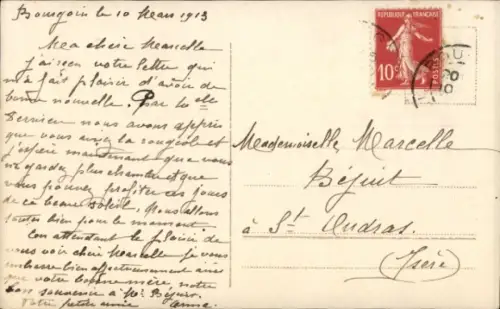 Bourgoin le 10 Mars 1913
Ma chère Marcelle
J'ai reçu votre lettre qui
m'a fait plaisir d'avoir de
bonne nouvelle. Par la
dernier nous avons appris
que vous aviez la rougeole et
j'espère maintenant que vous
ne gardez plus chambre et que
vous pouvez profiter ces jours
de ce beau soleil. Nous allons
toutes bien pour le moment
En attendant le plaisir de
vous voir chère Marcelle je vous
embrasse bien affectueusement ainsi
que votre bonne mère, notre
bon souvenir à Mr Béjuit.
Votre petite amie Anna
RÉPUBLIQUE FRANÇAISE
10c
POSTES
Mademoiselle Marcelle
Béjuit
à St Ondras
(Isère)